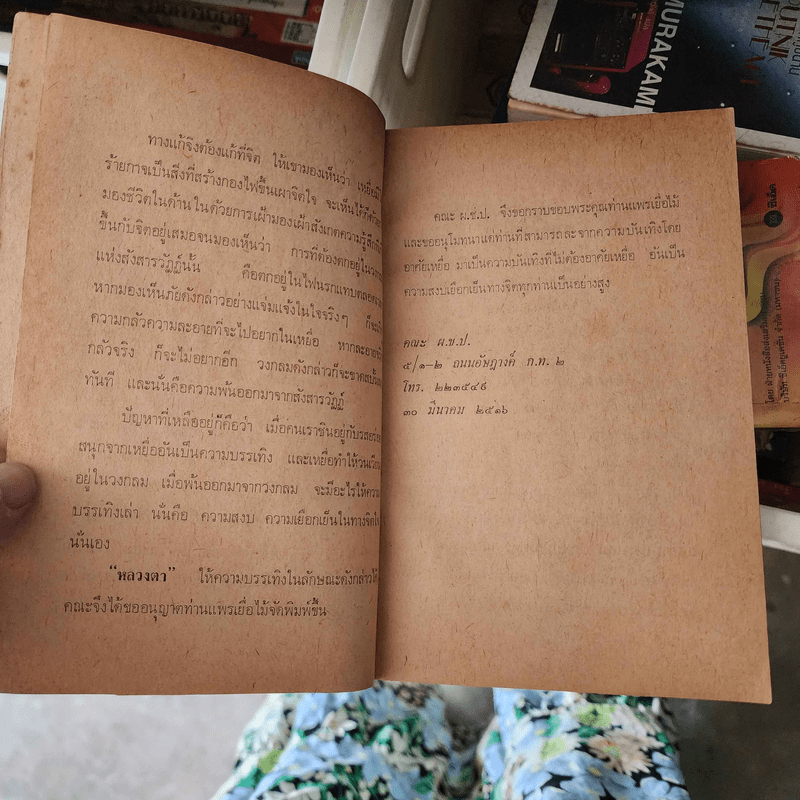 ทางแก้จึงต้องแก้ที่จิต ให้เขามองเห็นว่า เหยื่อแม้
ร้ายกาจเป็นสิ่งที่สร้างกองไฟขึ้นเผาจิตใจ จะเห็นได้ก็ด้วย
มองชีวิตในด้านในด้วยการเฝ้ามองเฝ้าสังเกตความรู้สึกที่
ขึ้นกับจิตอยู่เสมอจนมองเห็นว่า การที่ต้องตกอยู่ในวงกลม
แห่งสังสารวัฏฏ์นั้น คือตกอยู่ในไฟนรกแทบตลอดเวลา
หากมองเห็นภัยดังกล่าวอย่างแจ่มแจ้งในใจจริงๆ ก็จะ
ความกลัวความละอายที่จะไปอยากในเหยื่อ หากละอายจริง
กลัวจริง ก็จะไม่อยากอีก วงกลมดังกล่าวก็จะขาดสะบั้น
ทันที และนั่นคือความพ้นออกมาจากสังสารวัฏฏ์
ปัญหาที่เหลืออยู่ก็คือว่า เมื่อคนเราชินอยู่กับรสอร่อย
สนุกจากเหยื่ออันเป็นความบรรเทิง และเหยื่อทำให้วนเวียน
อยู่ในวงกลม เมื่อพ้นออกมาจากวงกลม จะมีอะไรให้ความ
บรรเทิงเล่า นั่นคือ ความสงบ ความเยือกเย็นในทางจิตใจ
นั่นเอง
“หลวงตา” ให้ความบรรเทิงในลักษณะดังกล่าวได้
คณะจึงได้ขออนุญาตท่านแพรเยื่อไม้จัดพิมพ์ขึ้น
คณะ ผ.ช.ป. จึงขอกราบขอบพระคุณท่านแพรเยื่อไม้
และขออนุโมทนาแด่ท่านที่สามารถละจากความบันเทิงโดย
อาศัยเหยื่อ มาเป็นความบันเทิงที่ไม่ต้องอาศัยเหยื่อ อันเป็น
ความสงบเยือกเย็นทางจิตทุกท่านเป็นอย่างสูง
คณะ ผ.ช.ป.
๕/๑-๒ ถนนอัษฎางค์ ก.ท. ๒
โทร. ๒๒๓๕๔๙
๓๐ มีนาคม ๒๕๑๖
MURAKAMI